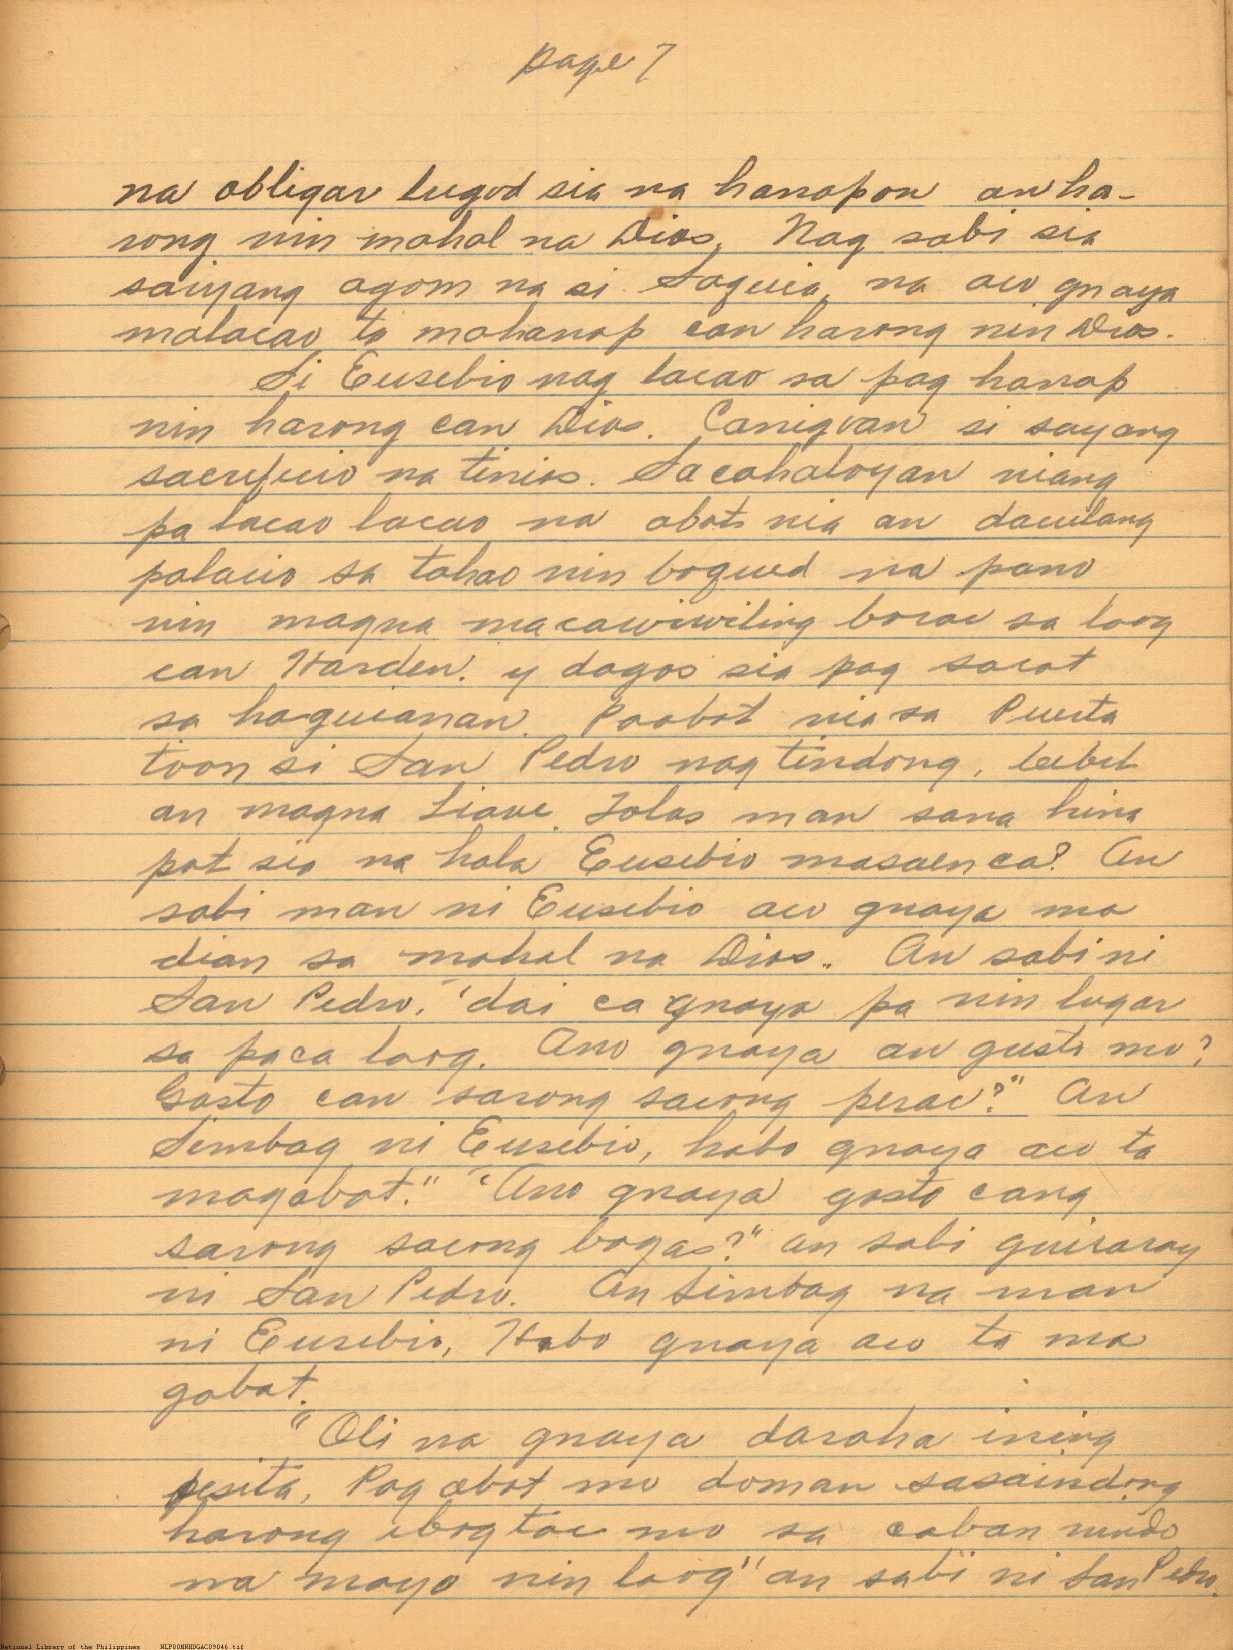 page 7
na obligar lugod sia na hanapon an ha-
rong nin mahal na Dios. Nag sabi sia
saiyang agom na si Saquia, na aco gnaya
malacao ta mahanap can harong nin Dios.
Si Eusebio nag lacao sa pag hanap
nin harong can Dios. Canigoan si sayang
sacrificio na tinios. Sa cahaloyan niang
pa lacao lacao na abot nia an daculang
palacio sa tahao nin boqued na pano
nin magna macawiwiling borac sa loog
can Harden. y dagos sia pag sacat
sa haguianan. Paabot nia sa Puerta
toon si San Pedro nag tindong, bitbit
an magna Liave. Tolos man sana hina
pot sia na hala Eusebio masaen ca? An
sabi man ni Eusebio aco gnaya ma
dian sa mahal na Dios.. An sabi ni
San Pedro, "dai ca gnaya pa nin lugar
sa paca loog. Ano gnaya an gusto mo?
Gosto can sarong sacong perac?" An
Simbag ni Eusebio, habo gnaya aco ta
magabat." "Ano gnaya gosto cang
sarong sacong bogas?" an sabi guiraray
ni San Pedro. An Simbag na man
ni Eusebio, Habo gnaya aco ta ma
gabat.
"Oli na gnaya daraha ining
pesita, Pag abot mo doman sasaindong
harong ibogtac mo sa caban nindo
na mayo nin loog" an sabi ni San Pedro.
National Library of the Philippines NLP00NHHDGAC09046.tif